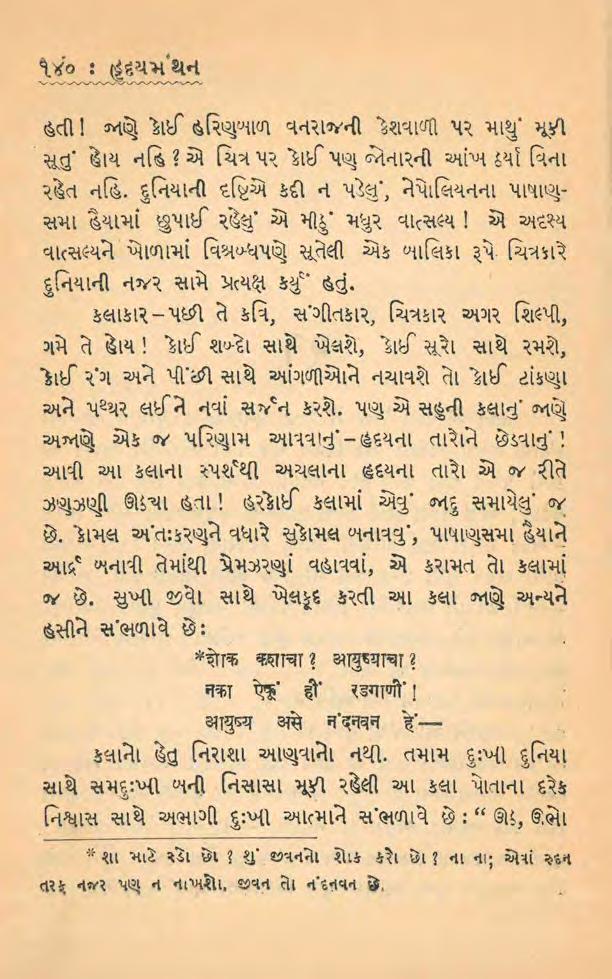 ૧૪૦ : હૃદયમંથન
હતી! જાણે કોઈ હરિણબાળ વનરાજની કેશવાળી પર માથું મૂકી
સૂતું હોય નહિ ? એ ચિત્ર પર કોઈ પણ જોનારની આંખ ઠર્યા વિના
રહેત નહિ. દુનિયાની દૃષ્ટિએ કદી ન પડેલું, નેપોલિયનના પાષાણ-
સમા હૈયામાં છુપાઈ રહેલું એ મીઠું મધુર વાત્સલ્ય! એ અદૃશ્ય
વાત્સલ્યને ખોળામાં વિશ્રબ્ધપણે સૂતેલી એક બાલિકા રૂપે ચિત્રકારે
દુનિયાની નજર સામે પ્રત્યક્ષ કર્યું હતું.
કલાકાર–પછી તે કવિ, સંગીતકાર, ચિત્રકાર અગર શિલ્પી,
ગમે તે હોય! કોઈ શબ્દો સાથે ખેલશે, કોઈ સૂરો સાથે રમશે,
કોઈ રંગ અને પીંછી સાથે આંગળીઓને નચાવશે તો કોઈ ટાંકણા
અને પથ્થર લઈને નવાં સર્જન કરશે. પણ એ સહુની કલાનું જાણે
અજાણે એક જ પરિણામ આવવાનું–હૃદયના તારોને છેડવાનું!
આવી આ કલાના સ્પર્શથી અચલાના હૃદયના તારો એ જ રીતે
ઝણઝણી ઊઠ્યા હતા! હરકોઈ કલામાં એવું જાદુ સમાયેલું જ
છે. કોમલ અંતઃકરણને વધારે સુકોમલ બનાવવું, પાષાણસમા હૈયાને
આર્દ્ર બનાવી તેમાંથી પ્રેમઝરણાં વહાવવાં, એ કરામત તો કલામાં
જ છે. સુખી જીવો સાથે ખેલકૂદ કરતી આ કલા જાણે અન્યને
હસીને સંભળાવે છે:
*शोक कशाचा ? आयुष्याचा ?
नका ऐकूं हीं रडगाणीं !
आयुष्य असे नंदनवन हें—
કલાનો હેતુ નિરાશા આણવાનો નથી. તમામ દુઃખી દુનિયા
સાથે સમદુઃખી બની નિસાસા મૂકી રહેલી આ કલા પોતાના દરેક
નિશ્વાસ સાથે અભાગી દુઃખી આત્માને સંભળાવે છે : “ ઊઠ, ઊભો
* શા માટે રડો છો ? શું જીવનનો શોક કરો છો ? ના ના; એવાં રુદન
તરફ નજર પણ ન નાખશો. જીવન તો નંદનવન છે.